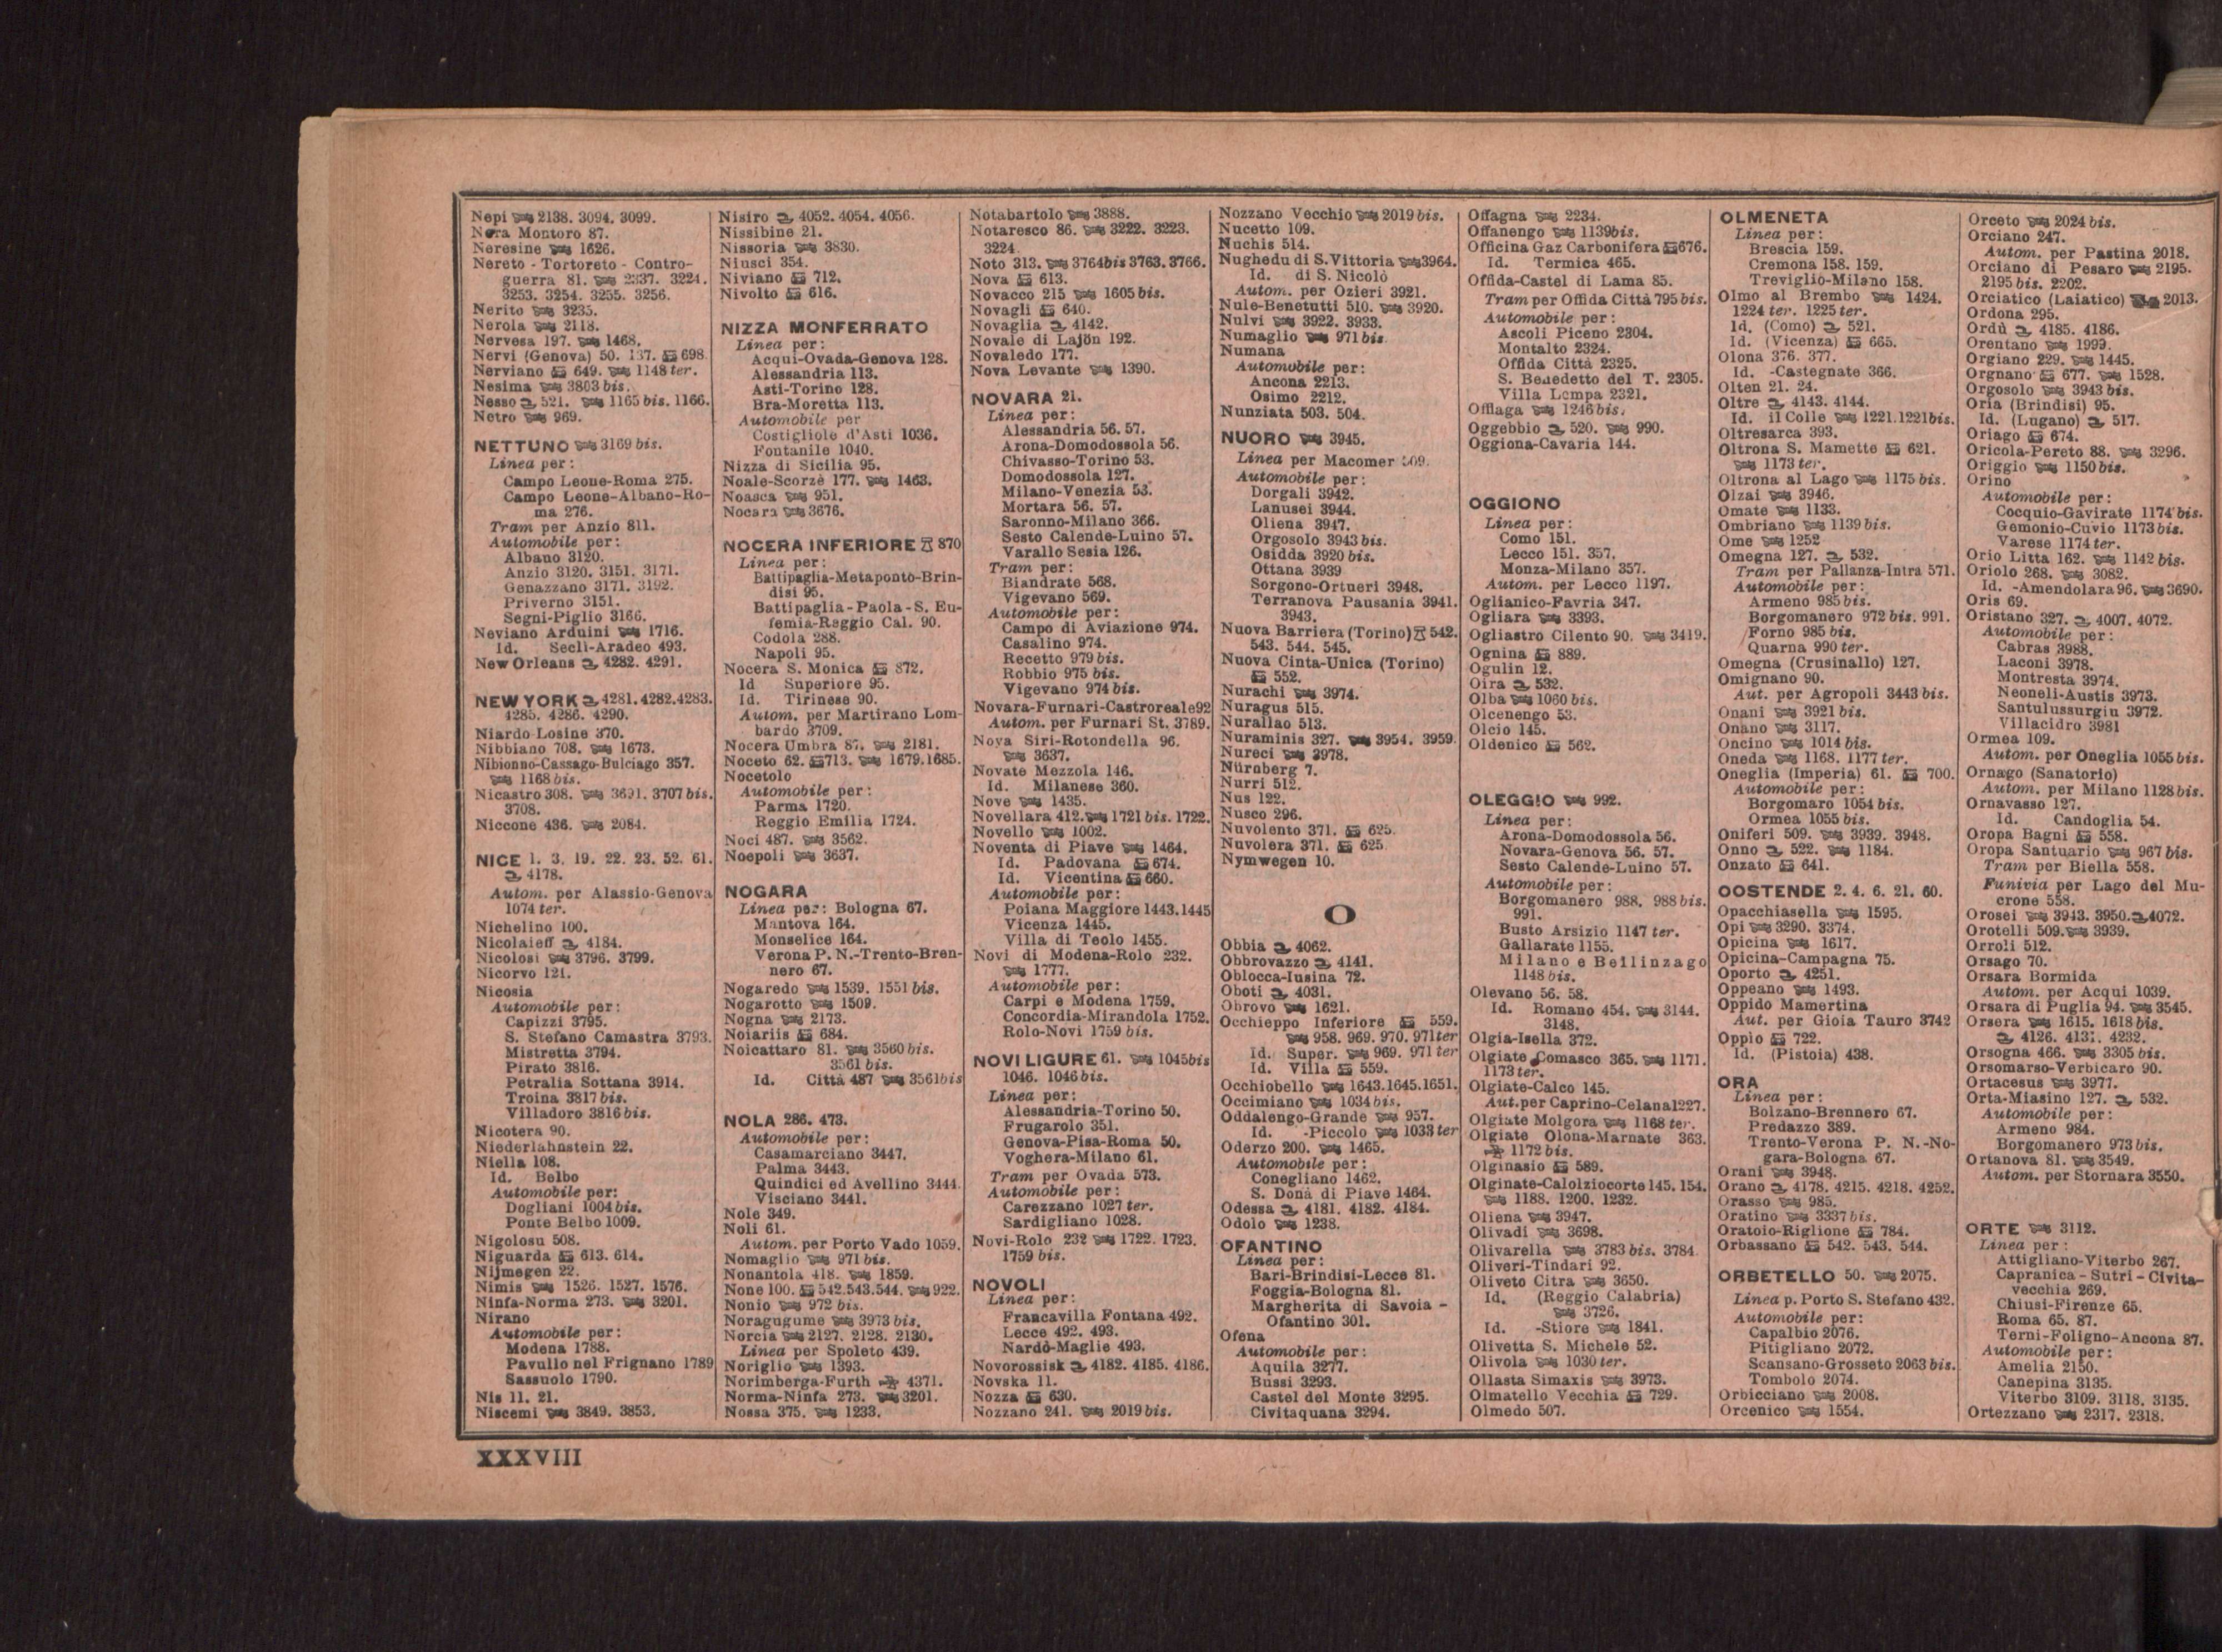 Nepi 2138. 3094. 3099.
Nera Montoro 87.
Neresine 1626.
Nereto - Tortoreto - Contro-
guerra 81. 2337. 3224.
3253. 3254. 3255. 3256.
Nerito 3235.
Nerola 2118.
Nervesa 197. 1468.
Nervi (Genova) 50. 137. 698.
Nerviano 649. 1148 ter.
Nesima 3803 bis.
Nesso 521. 1165 bis. 1166.
Netro 969.
NETTUNO 3169 bis.
Linea per:
Campo Leone-Roma 275.
Campo Leone-Albano-Ro-
ma 276.
Tram per Anzio 811.
Automobile per:
Albano 3120.
Anzio 3120. 3151. 3171.
Genazzano 3171. 3192.
Priverno 3151.
Segni-Piglio 3166.
Neviano Arduini 1716.
Id. Secli-Aradeo 493.
New Orleans 4282. 4291.
NEW YORK 4281. 4282. 4283.
4285. 4286. 4290.
Niardo Losine 370.
Nibbiano 708. 1673.
Nibionno-Cassago-Bulciago 357.
1168 bis.
Nicastro 308. 3691. 3707 bis.
3708.
Niccone 436. 2084.
NICE 1. 3. 19. 22. 23. 52. 61.
4178.
Autom. per Alassio-Genova
1074 ter.
Nichelino 100.
Nicolaieff 4184.
Nicolosi 3796. 3799.
Nicorvo 121.
Nicosia
Automobile per:
Capizzi 3795.
S. Stefano Camastra 3793.
Mistretta 3794.
Pirato 3816.
Petralia Sottana 3914.
Troina 3817 bis.
Villadoro 3816 bis.
Nicotera 90.
Niederlahnstein 22.
Niella 108.
Id. Belbo
Automobile per:
Dogliani 1004 bis.
Ponte Belbo 1009.
Nigolosu 508.
Niguarda 613. 614.
Nijmegen 22.
Nimis 1526. 1527. 1576.
Ninfa-Norma 273. 3201.
Nirano
Automobile per:
Modena 1788.
Pavullo nel Frignano 1789
Sassuolo 1790.
Nis 11. 21.
Niscemi 3849. 3853.
Nisiro 4052. 4054. 4056.
Nissibine 21.
Nissoria 3830.
Niusci 354.
Niviano 712.
Nivolto 616.
NIZZA MONFERRATO
Linea per:
Acqui-Ovada-Genova 128.
Alessandria 113.
Asti-Torino 128.
Bra-Moretta 113.
Automobile per
Costigliole d'Asti 1036.
Fontanile 1040.
Nizza di Sicilia 95.
Noale-Scorzè 177. 1463.
Noasca 951.
Nocara 3676.
NOCERA INFERIORE 870
Linea per:
Battipaglia-Metaponto-Brin-
disi 95.
Battipaglia-Paola-S. Eu-
femia-Reggio Cal. 90.
Codola 288.
Napoli 95.
Nocera S. Monica 872.
Id Superiore 95.
Id. Tirinese 90.
Autom. per Martirano Lom-
bardo 3709.
Nocera Umbra 87. 2181.
Noceto 62. 713. 1679. 1685.
Nocetolo
Automobile per:
Parma 1720.
Reggio Emilia 1724.
Noci 487. 3562.
Noepoli 3637.
NOGARA
Linea per: Bologna 67.
Mantova 164.
Monselice 164.
Verona P. N.-Trento-Bren-
nero 67.
Nogaredo 1539. 1551 bis.
Nogarotto 1509.
Nogna 2173.
Noiariis 684.
Noicattaro 81. 3560 bis.
3561 bis.
Id. Città 487 3561bis
NOLA 286. 473.
Automobile per:
Casamarciano 3447.
Palma 3443.
Quindici ed Avellino 3444.
Visciano 3441.
Nole 349.
Noli 61.
Autom. per Porto Vado 1059.
Nomaglio 971 bis.
Nonantola 418. 1859.
None 100. 542. 543. 544. 922.
Nonio 972 bis.
Noragugume 3973 bis.
Norcia 2127. 2128. 2130.
Linea per Spoleto 439.
Noriglio 1393.
Norimberga-Furth 4371.
Norma-Ninfa 273. 3201.
Nossa 375. 1233.
Notabartolo 3888.
Notaresco 86. 3222. 3223.
3224.
Noto 313. 3764bis 3763. 3766.
Nova 613.
Novacco 215 1605 bis.
Novagli 640.
Novaglia 4142.
Novale di Lajön 192.
Novaledo 177.
Nova Levante 1390.
NOVARA 21.
Linea per:
Alessandria 56. 57.
Arona-Domodossola 56.
Chivasso-Torino 53.
Domodossola 127.
Milano-Venezia 53.
Mortara 56. 57.
Saronno-Milano 366.
Sesto Calende-Luino 57.
Varallo Sesia 126.
Tram per:
Biandrate 568.
Vigevano 569.
Automobile per:
Campo di Aviazione 974.
Casalino 974.
Recetto 979 bis.
Robbio 975 bis.
Vigevano 974 bis.
Novara-Furnari-Castroreale92
Autom. per Furnari St. 3789.
Nova Siri-Rotondella 96.
3637.
Novate Mezzola 146.
Id. Milanese 360.
Nove 1435.
Novellara 412. 1721 bis. 1722.
Novello 1002.
Noventa di Piave 1464.
Id. Padovana 674.
Id. Vicentina 660.
Automobile per:
Poiana Maggiore 1443.1445
Vicenza 1445.
Villa di Teolo 1455.
Novi di Modena-Rolo 232.
1777.
Automobile per:
Carpi e Modena 1759.
Concordia-Mirandola 1752.
Rolo-Novi 1759 bis.
NOVI LIGURE 61. 1045bis
1046. 1046 bis.
Linea per:
Alessandria-Torino 50.
Frugarolo 351.
Genova-Pisa-Roma 50.
Voghera-Milano 61.
Tram per Ovada 573.
Automobile per:
Carezzano 1027 ter.
Sardigliano 1028.
Novi-Rolo 232 1722. 1723.
1759 bis.
NOVOLI
Linea per:
Francavilla Fontana 492.
Lecce 492. 493.
Nardò-Maglie 493.
Novorossisk 4182. 4185. 4186.
Novska 11.
Nozza 630.
Nozzano 241. 2019 bis.
Nozzano Vecchio 2019 bis.
Nucetto 109.
Nuchis 514.
Nughedu di S. Vittoria 3964.
Id. di S. Nicolò
Autom. per Ozieri 3921.
Nule-Benetutti 510. 3920.
Nulvi 3922. 3933.
Numaglio 971 bis.
Numana
Automobile per:
Ancona 2213.
Osimo 2212.
Nunziata 503. 504.
NUORO 3945.
Linea per Macomer 509.
Automobile per:
Dorgali 3942.
Lanusei 3944.
Oliena 3947.
Orgosolo 3943 bis.
Osidda 3920 bis.
Ottana 3939
Sorgono-Ortueri 3948.
Terranova Pausania 3941.
3943.
Nuova Barriera (Torino) 542.
543. 544. 545.
Nuova Cinta-Unica (Torino)
552.
Nurachi 3974.
Nuragus 515.
Nurallao 513.
Nuraminis 327. 3954. 3959.
Nureci 3978.
Nürnberg 7.
Nurri 512.
Nus 122.
Nusco 296.
Nuvolento 371. 625.
Nuvolera 371. 625
Nymwegen 10.
O
Obbia 4062.
Obbrovazzo 4141.
Oblocca-Iusina 72.
Oboti 4031.
Obrovo 1621.
Occhieppo Inferiore 559.
958. 969. 970. 971ter
Id. Super. 969. 971 ter
Id. Villa 559.
Occhiobello 1643.1645.1651.
Occimiano 1034 bis.
Oddalengo-Grande 957.
Id. -Piccolo 1033 ter
Oderzo 200. 1465.
Automobile per:
Conegliano 1462.
S. Donà di Piave 1464.
Odessa 4181. 4182. 4184.
Odolo 1238.
OFANTINO
Linea per:
Bari-Brindisi-Lecce 81.
Foggia-Bologna 81.
Margherita di Savoia -
Ofantino 301.
Ofena
Automobile per:
Aquila 3277.
Bussi 3293.
Castel del Monte 3295.
Civitaquana 3294.
Offagna 2234.
Offanengo 1139bis.
Officina Gaz Carbonifera 676.
Id. Termica 465.
Offida-Castel di Lama 85.
Tram per Offida Città 795 bis.
Automobile per:
Ascoli Piceno 2304.
Montalto 2324.
Offida Città 2325.
S. Benedetto del T. 2305.
Villa Lempa 2321.
Offlaga 1246 bis.
Oggebbio 520. 990.
Oggiona-Cavaria 144.
OGGIONO
Linea per:
Como 151.
Lecco 151. 357.
Monza-Milano 357.
Autom. per Lecco 1197.
Oglianico-Favria 347.
Ogliara 3393.
Ogliastro Cilento 90. 3419.
Ognina 889.
Ogulin 12.
Oira 532.
Olba 1060 bis.
Olcenengo 53.
Olcio 145.
Oldenico 562.
OLEGGIO 992.
Linea per:
Arona-Domodossola 56.
Novara-Genova 56. 57.
Sesto Calende-Luino 57.
Automobile per:
Borgomanero 988. 988 bis.
991.
Busto Arsizio 1147 ter.
Gallarate 1155.
Milano e Bellinzago
1148 bis.
Olevano 56. 58.
Id. Romano 454. 3144.
3148.
Olgia-Isella 372.
Olgiate Comasco 365. 1171.
1173 ter.
Olgiate-Calco 145.
Aut. per Caprino-Celana1227.
Olgiate Molgora 1168 ter.
Olgiate Olona-Marnate 363.
1172 bis.
Olginasio 589.
Olginate-Calolziocorte 145. 154.
1188. 1200. 1232.
Oliena 3947.
Olivadi 3698.
Olivarella 3783 bis. 3784.
Oliveri-Tindari 92.
Oliveto Citra 3650.
Id. (Reggio Calabria)
3726.
Id. -Stiore 1841.
Olivetta S. Michele 52.
Olivola 1030 ter.
Ollasta Simaxis 3973.
Olmatello Vecchia 729.
Olmedo 507.
OLMENETA
Linea per:
Brescia 159.
Cremona 158. 159.
Treviglio-Milano 158.
Olmo al Brembo 1424.
1224 ter. 1225 ter.
Id. (Como) 521.
Id. (Vicenza) 665.
Olona 376. 377.
Id. -Castegnate 366.
Olten 21. 24.
Oltre 4143. 4144.
Id. il Colle 1221.1221bis.
Oltresarca 393.
Oltrona S. Mamette 621.
1173 ter.
Oltrona al Lago 1175 bis.
Olzai 3946.
Omate 1133.
Ombriano 1139 bis.
Ome 1252
Omegna 127. 532.
Tram per Pallanza-Intra 571.
Automobile per:
Armeno 985 bis.
Borgomanero 972 bis. 991.
Forno 985 bis.
Quarna 990 ter.
Omegna (Crusinallo) 127.
Omignano 90.
Aut. per Agropoli 3443 bis.
Onani 3921 bis.
Onano 3117.
Oncino 1014 bis.
Oneda 1168. 1177 ter.
Oneglia (Imperia) 61. 700.
Automobile per:
Borgomaro 1054 bis.
Ormea 1055 bis.
Oniferi 509. 3939. 3948.
Onno 522. 1184.
Onzato 641.
OOSTENDE 2. 4. 6. 21. 60.
Opacchiasella 1595.
Opi 3290. 3374.
Opicina 1617.
Opicina-Campagna 75.
Oporto 4251.
Oppeano 1493.
Oppido Mamertina
Aut. per Gioia Tauro 3742
Oppio 722.
Id. (Pistoia) 438.
ORA
Linea per:
Bolzano-Brennero 67.
Predazzo 389.
Trento-Verona P. N.-No-
gara-Bologna 67.
Orani 3948.
Orano 4178. 4215. 4218. 4252.
Orasso 985.
Oratino 3337 bis.
Oratoio-Riglione 784.
Orbassano 542. 543. 544.
ORBETELLO 50. 2075.
Linea p. Porto S. Stefano 432.
Automobile per:
Capalbio 2076.
Pitigliano 2072.
Scansano-Grosseto 2063 bis.
Tombolo 2074.
Orbicciano 2008.
Orcenico 1554.
Orceto 2024 bis.
Orciano 247.
Autom. per Pastina 2018.
Orciano di Pesaro 2195.
2195 bis. 2202.
Orciatico (Laiatico) 2013.
Ordona 295.
Ordù 4185. 4186.
Orentano 1999.
Orgiano 229. 1445.
Orgnano 677. 1528.
Orgosolo 3943 bis.
Oria (Brindisi) 95.
Id. (Lugano) 517.
Oriago 674.
Oricola-Pereto 88. 3296.
Origgio 1150 bis.
Orino
Automobile per:
Cocquio-Gavirate 1174 bis.
Gemonio-Cuvio 1173 bis.
Varese 1174 ter.
Orio Litta 162. 1142 bis.
Oriolo 268. 3082.
Id. -Amendolara 96. 3690.
Oris 69.
Oristano 327. 4007. 4072.
Automobile per:
Cabras 3988.
Laconi 3978.
Montresta 3974.
Neoneli-Austis 3973.
Santulussurgiu 3972.
Villacidro 3981
Ormea 109.
Autom. per Oneglia 1055 bis.
Ornago (Sanatorio)
Autom. per Milano 1128 bis.
Ornavasso 127.
Id. Candoglia 54.
Oropa Bagni 558.
Oropa Santuario 967 bis.
Tram per Biella 558.
Funivia per Lago del Mu-
crone 558.
Orosei 3943. 3950. 4072.
Orotelli 509. 3939.
Orroli 512.
Orsago 70.
Orsara Bormida
Autom. per Acqui 1039.
Orsara di Puglia 94. 3545.
Orsera 1615. 1618 bis.
4126. 4131. 4232.
Orsogna 466. 3305 bis.
Orsomarso-Verbicaro 90.
Ortacesus 3977.
Orta-Miasino 127. 532.
Automobile per:
Armeno 984.
Borgomanero 973 bis.
Ortanova 81. 3549.
Autom. per Stornara 3550.
ORTE 3112.
Linea per:
Attigliano-Viterbo 267.
Capranica - Sutri - Civita-
vecchia 269.
Chiusi-Firenze 65.
Roma 65. 87.
Terni-Foligno-Ancona 87.
Automobile per:
Amelia 2150.
Canepina 3135.
Viterbo 3109. 3118. 3135.
Ortezzano 2317. 2318.
XXXVIII